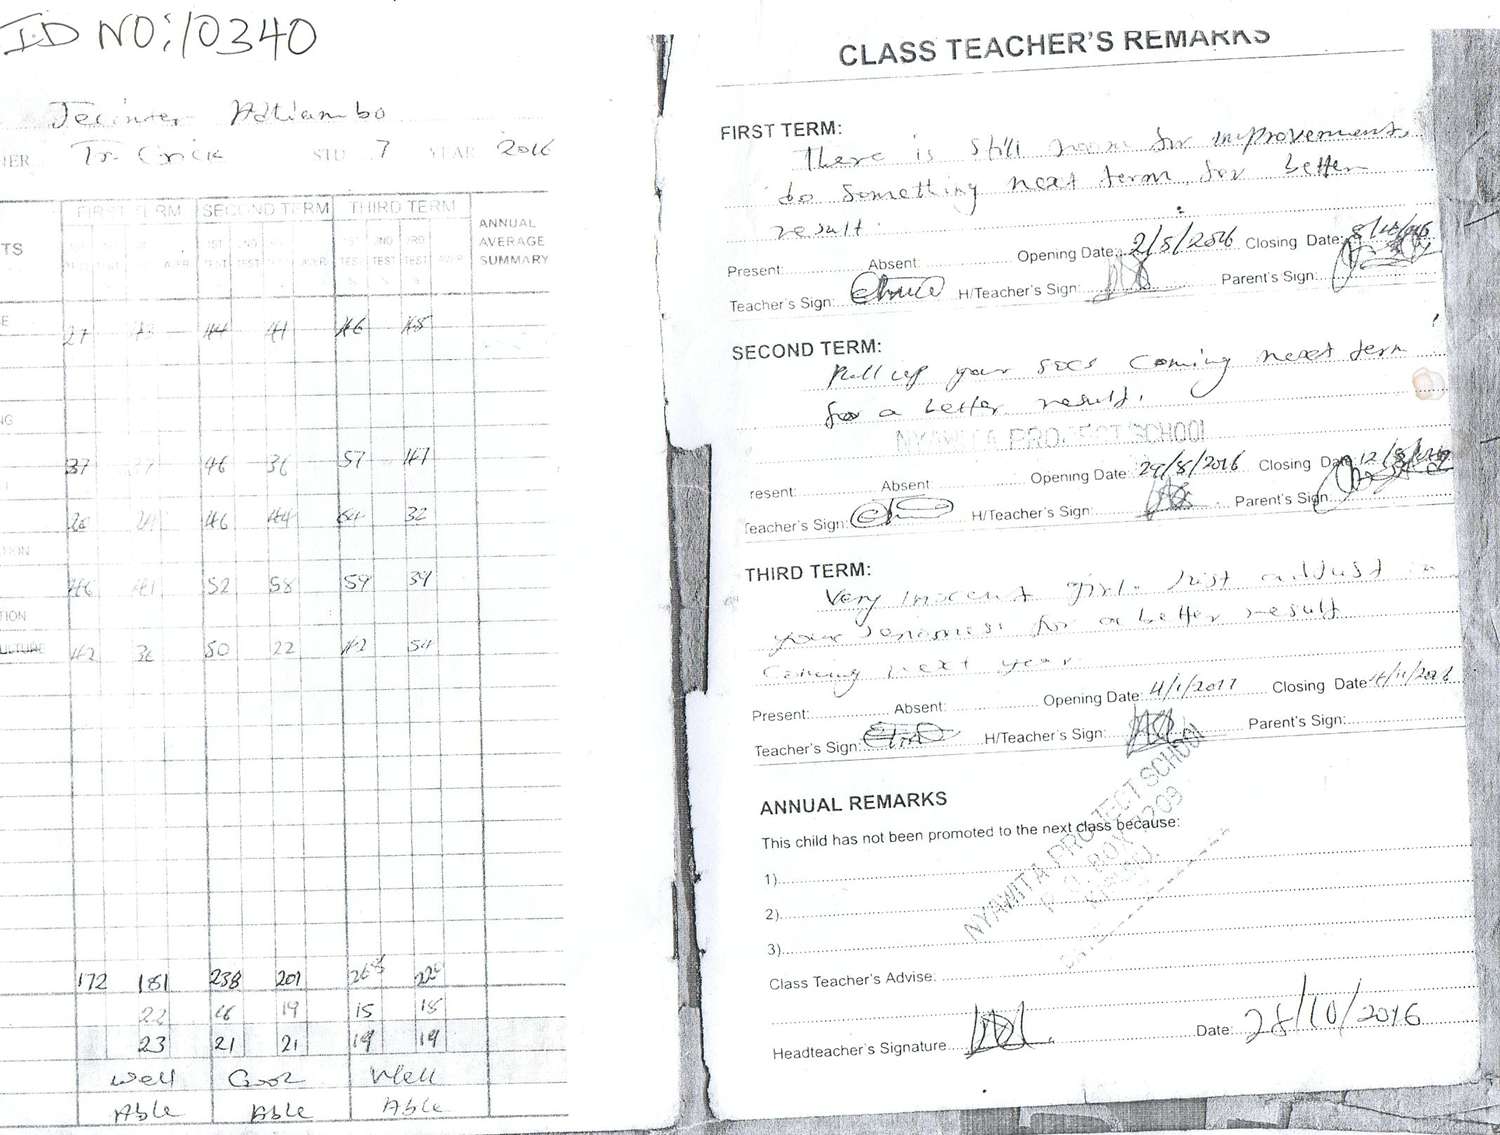 ID NO: 10340
Jecinter Adhiambo
HER Tr. STD 7 YEAR 2016
FIRST TERM SECOND TERM THIRD TERM ANNUAL AVERAGE SUMMARY
TS
1ST 2ND 1ST 2ND 3RD
TEST TEST TEST TEST TEST
E 27 44 41 46 48
NG
37 37 46 36 57 47
46 44 32
TION
46 41 52 58 59 39
TION
ULTURE 42 36 50 22 42 54
172 181 238 201
22 16 19 15 18
23 21 21 19 19
Well Good Well
Able Able Able
CLASS TEACHER'S REMARKS
FIRST TERM:
There is still room for improvement,
do something next term for better
result.
Present: Absent: Opening Date: 2/5/2016 Closing Date:
Teacher's Sign: H/Teacher's Sign: Parent's Sign:
SECOND TERM:
Pull up your socs coming next term
for a better result.
NYAWITA PROJECT SCHOOL
resent: Absent: Opening Date: 29/8/2016 Closing Date: 12/8/
Teacher's Sign: H/Teacher's Sign: Parent's Sign
THIRD TERM:
Very inocent girl. Just addust in
your for a better result
coming next year.
Present: Absent: Opening Date: 4/1/2017 Closing Date: /11/2016
Teacher's Sign: H/Teacher's Sign: Parent's Sign:
NYAWITA PROJECT SCHOOL
ANNUAL REMARKS
This child has not been promoted to the next class because:
1)
2)
3)
Class Teacher's Advise:
Headteacher's Signature Date: 28/10/2016